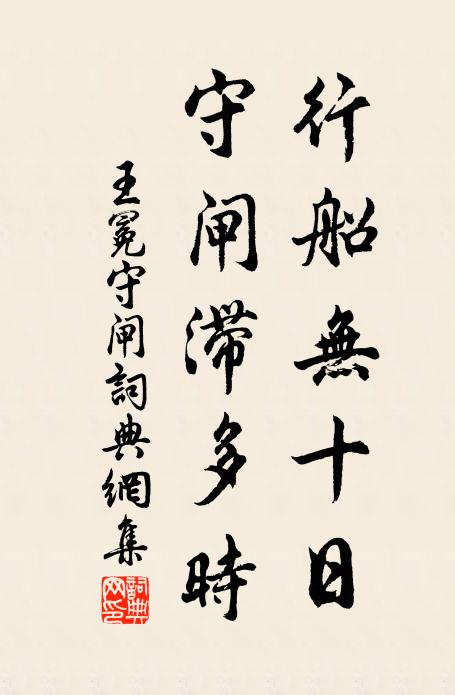 行船無十日
守閘滯多時
王冕守閘詞典網集
詞典網印